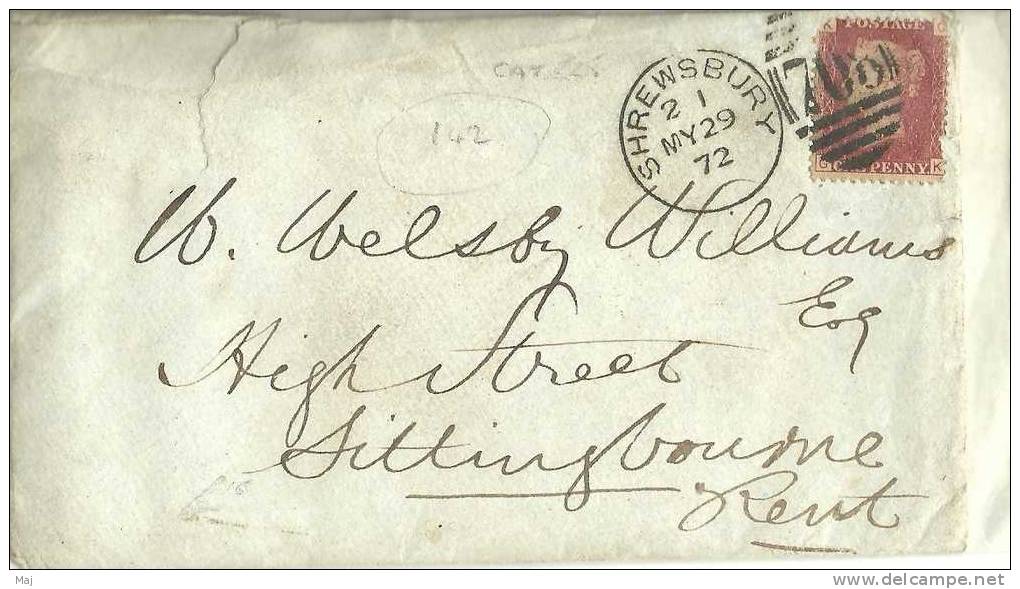 142
SHREWSBURY
2 1
MY 29
72
708
POSTAGE
ONE PENNY
K
W. Welsby Williams
Esq
High Street
Sittingbourne
Kent
Maj
www.delcampe.net